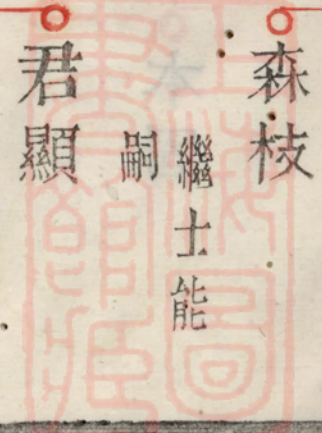 森枝
繼士能
嗣
君顯